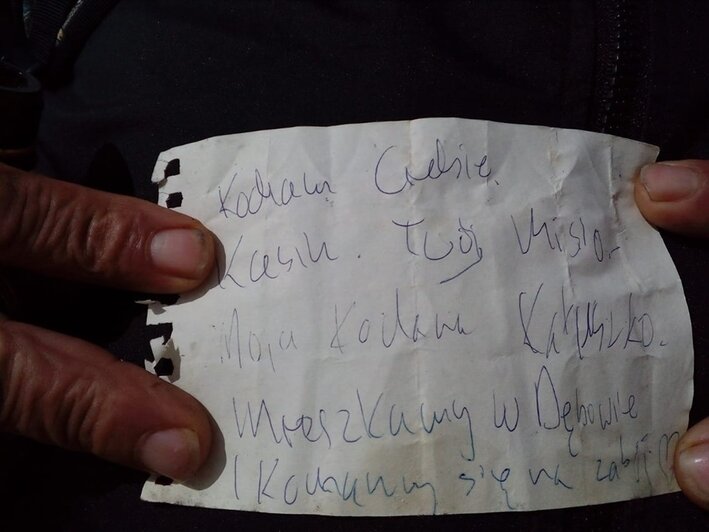 Kocham Ciebie
Kasiu. Twój Misio.
Moja Kochana
Mieszkamy w Dębowie
i Kochamy się na zabój